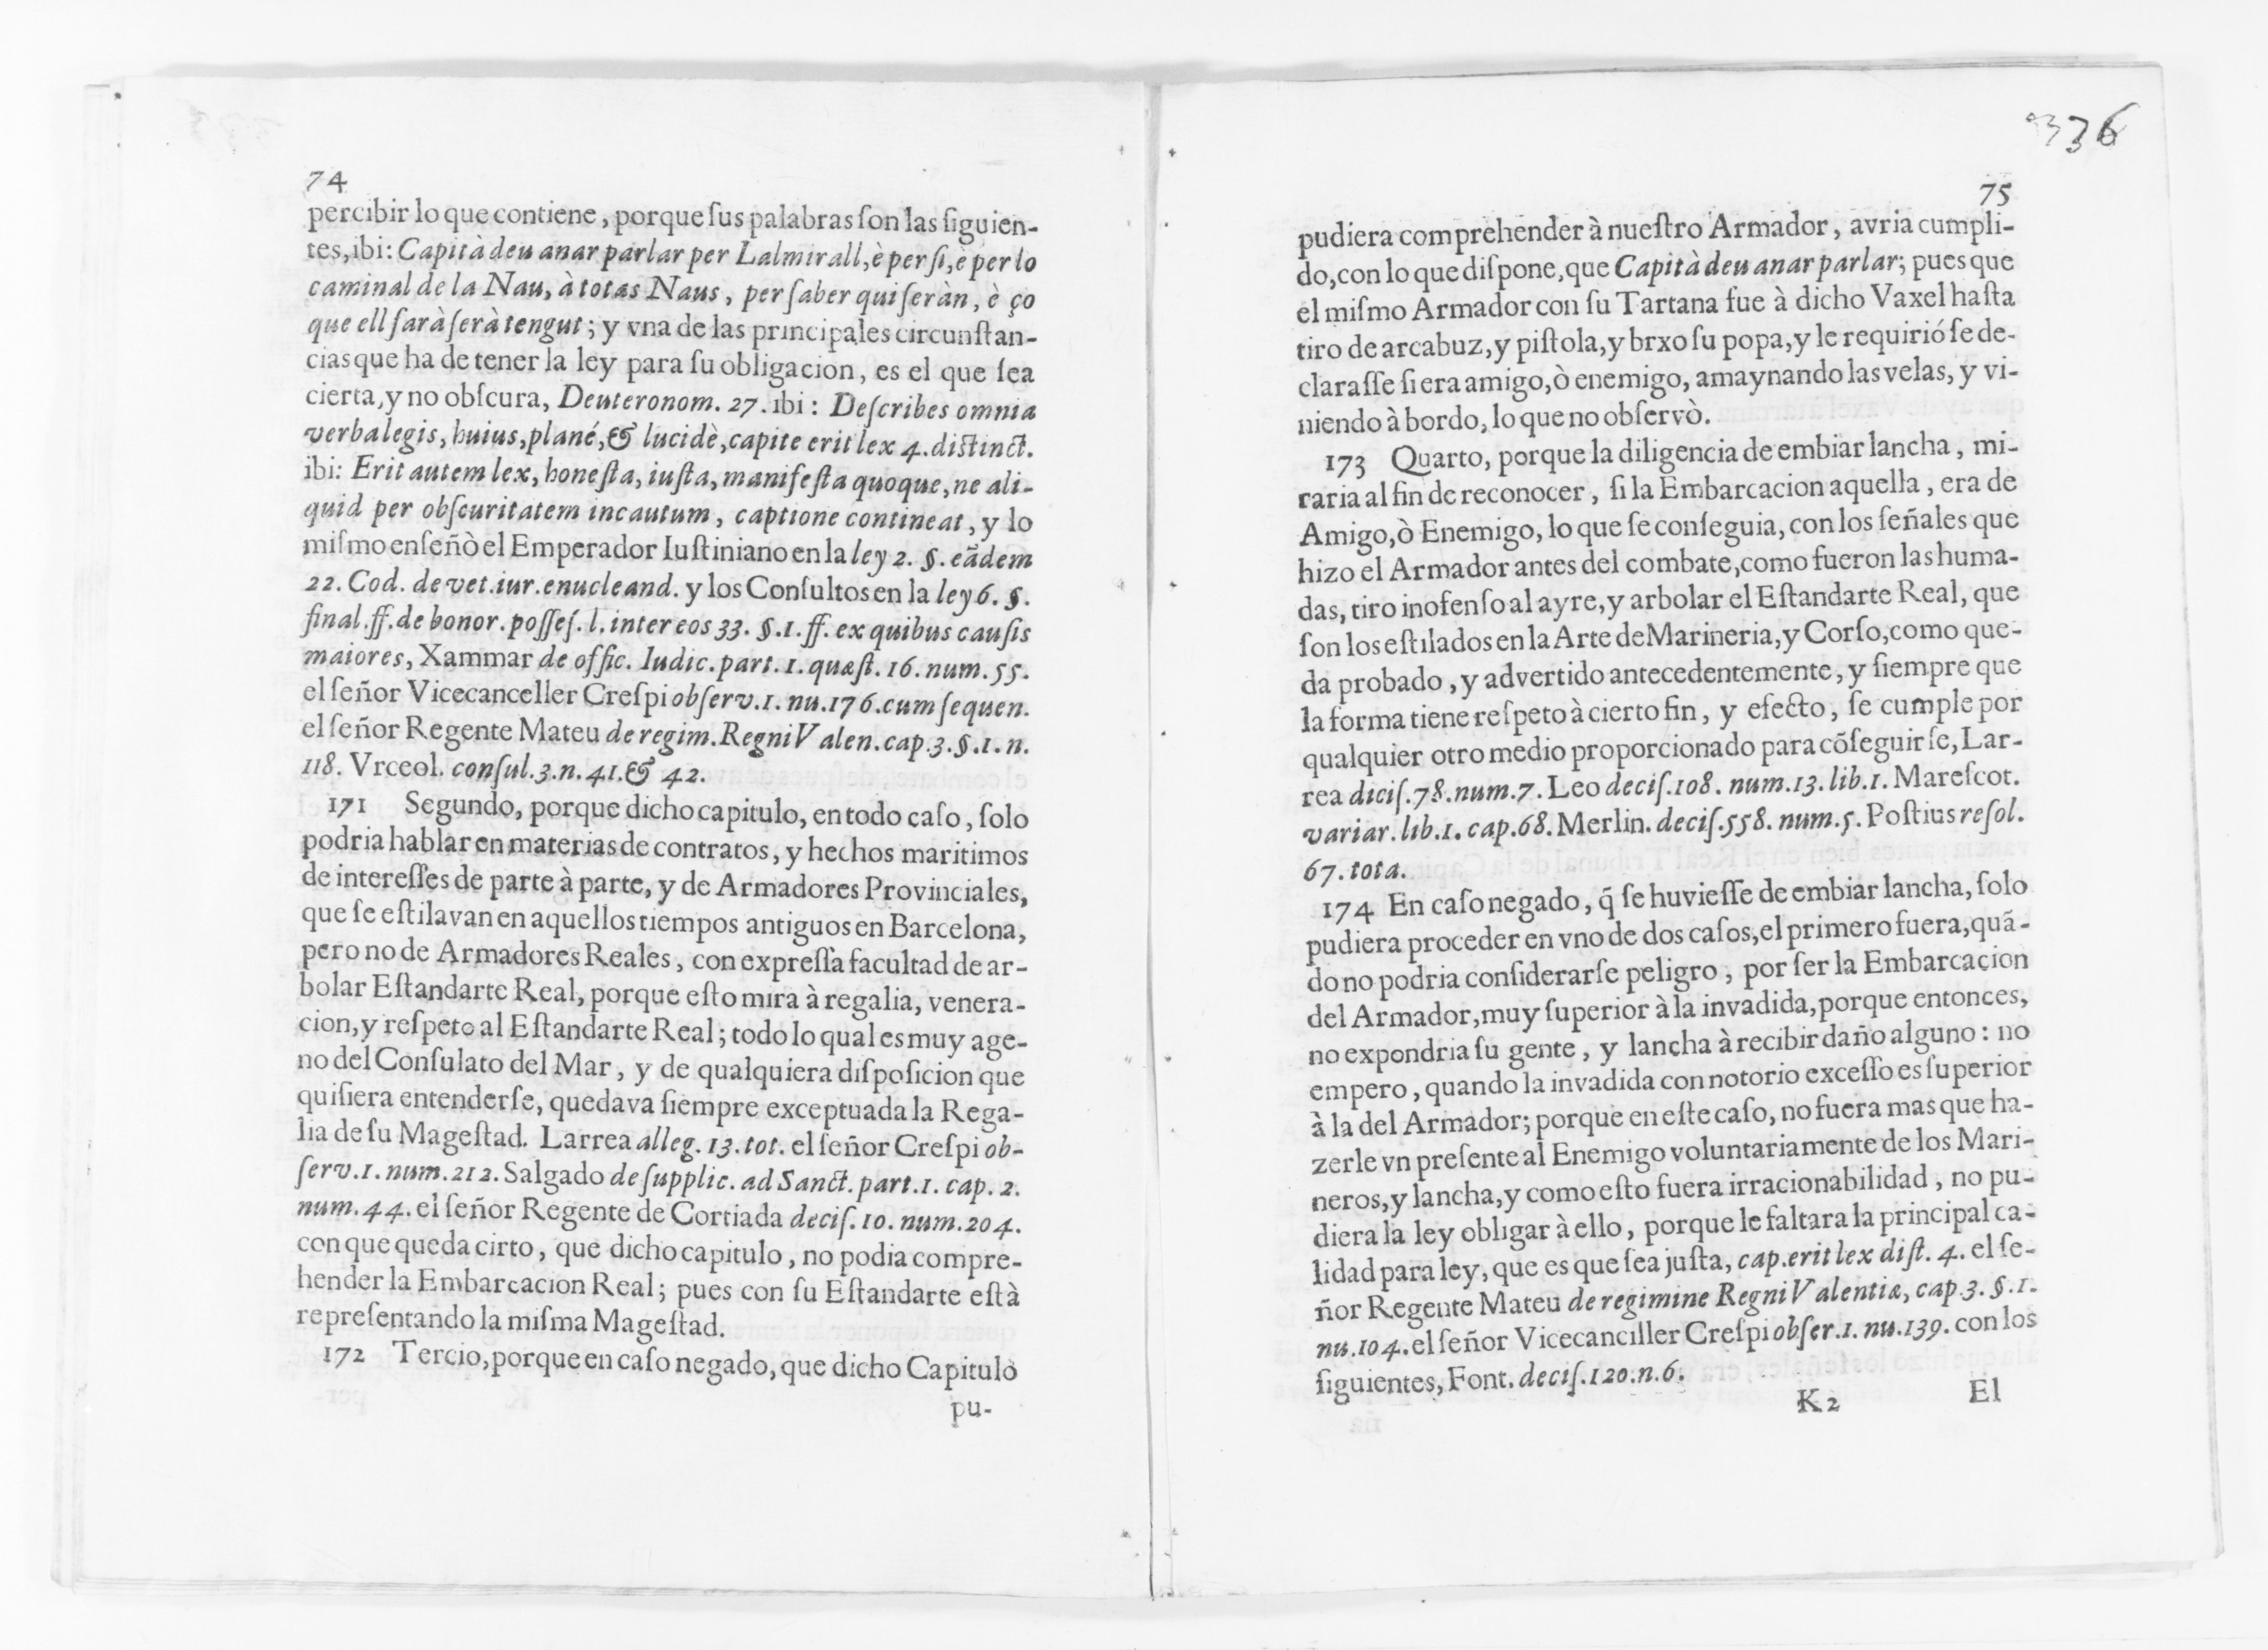 74
percibir lo que contiene, porque ſus palabras ſon las ſiguien-
tes, ibi: Capità deu anar parlar per Lalmirall, è per ſi, è per lo
caminal de la Nau, à totas Naus, per ſaber qui ſeràn, è ço
que ell farà ſerà tengut; y vna de las principales circunſtan-
cias que ha de tener la ley para ſu obligacion, es el que ſea
cierta, y no obſcura, Deuteronom. 27. ibi: Deſcribes omnia
verba legis, huius, plané, & lucidè, capite erit lex 4. distinct.
ibi: Erit autem lex, honeſta, iuſta, manifeſta quoque, ne ali-
quid per obſcuritatem incautum, captione contineat, y lo
miſmo enſeñò el Emperador Iuſtiniano en la ley 2. §. eādem
22. Cod. de vet. iur. enucleand. y los Conſultos en la ley 6. §.
final. ff. de bonor. poſſeſ. l. inter eos 33. §. 1. ff. ex quibus cauſis
maiores, Xammar de offic. Iudic. part. 1. quæſt. 16. num. 55.
el ſeñor Vicecanceller Creſpi obſerv. 1. nu. 176. cum ſequen.
el ſeñor Regente Mateu de regim. Regni Valen. cap. 3. §. 1. n.
118. Vrceol. conſul. 3. n. 41. & 42.
171 Segundo, porque dicho capitulo, en todo caſo, ſolo
podria hablar en materias de contratos, y hechos maritimos
de intereſſes de parte à parte, y de Armadores Provinciales,
que ſe eſtilavan en aquellos tiempos antiguos en Barcelona,
pero no de Armadores Reales, con expreſſa facultad de ar-
bolar Eſtandarte Real, porque eſto mira à regalia, venera-
cion, y reſpeto al Eſtandarte Real; todo lo qual es muy age-
no del Conſulato del Mar, y de qualquiera diſpoſicion que
quiſiera entenderſe, quedava ſiempre exceptuada la Rega-
lia de ſu Mageſtad. Larrea alleg. 13. tot. el ſeñor Creſpi ob-
ſerv. 1. num. 212. Salgado de ſupplic. ad Sanct. part. 1. cap. 2.
num. 44. el ſeñor Regente de Cortiada deciſ. 10. num. 204.
con que queda cirto, que dicho capitulo, no podia compre-
hender la Embarcacion Real; pues con ſu Eſtandarte eſtà
repreſentando la miſma Mageſtad.
172 Tercio, porque en caſo negado, que dicho Capitulo
pu-
336
75
pudiera comprehender à nueſtro Armador, avria cumpli-
do, con lo que diſpone, que Capità deu anar parlar; pues que
el miſmo Armador con ſu Tartana fue à dicho Vaxel haſta
tiro de arcabuz, y piſtola, y brxo ſu popa, y le requirió ſe de-
claraſſe ſi era amigo, ò enemigo, amaynando las velas, y vi-
niendo à bordo, lo que no obſervò.
173 Quarto, porque la diligencia de embiar lancha, mi-
raria al fin de reconocer, ſi la Embarcacion aquella, era de
Amigo, ò Enemigo, lo que ſe conſeguia, con los ſeñales que
hizo el Armador antes del combate, como fueron las huma-
das, tiro inofenſo al ayre, y arbolar el Eſtandarte Real, que
ſon los eſtilados en la Arte de Marineria, y Corſo, como que-
da probado, y advertido antecedentemente, y ſiempre que
la forma tiene reſpeto à cierto fin, y efecto, ſe cumple por
qualquier otro medio proporcionado para cõſeguirſe, Lar-
rea diciſ. 78. num. 7. Leo deciſ. 108. num. 13. lib. 1. Mareſcot.
variar. lib. 1. cap. 68. Merlin. deciſ. 558. num. 5. Poſtius reſol.
67. tota.
174 En caſo negado, q̃ ſe huvieſſe de embiar lancha, ſolo
pudiera proceder en vno de dos caſos, el primero fuera, quã-
do no podria conſiderarſe peligro, por ſer la Embarcacion
del Armador, muy ſuperior à la invadida, porque entonces,
no expondria ſu gente, y lancha à recibir daño alguno: no
empero, quando la invadida con notorio exceſſo es ſuperior
à la del Armador; porque en eſte caſo, no fuera mas que ha-
zerle vn preſente al Enemigo voluntariamente de los Mari-
neros, y lancha, y como eſto fuera irracionabilidad, no pu-
diera la ley obligar à ello, porque le faltara la principal ca-
lidad para ley, que es que ſea juſta, cap. erit lex diſt. 4. el ſe-
ñor Regente Mateu de regimine Regni Valentiæ, cap. 3. §. 1.
nu. 104. el ſeñor Vicecanciller Creſpi obſer. 1. nu. 139. con los
ſiguientes, Font. deciſ. 120. n. 6.
K 2 El